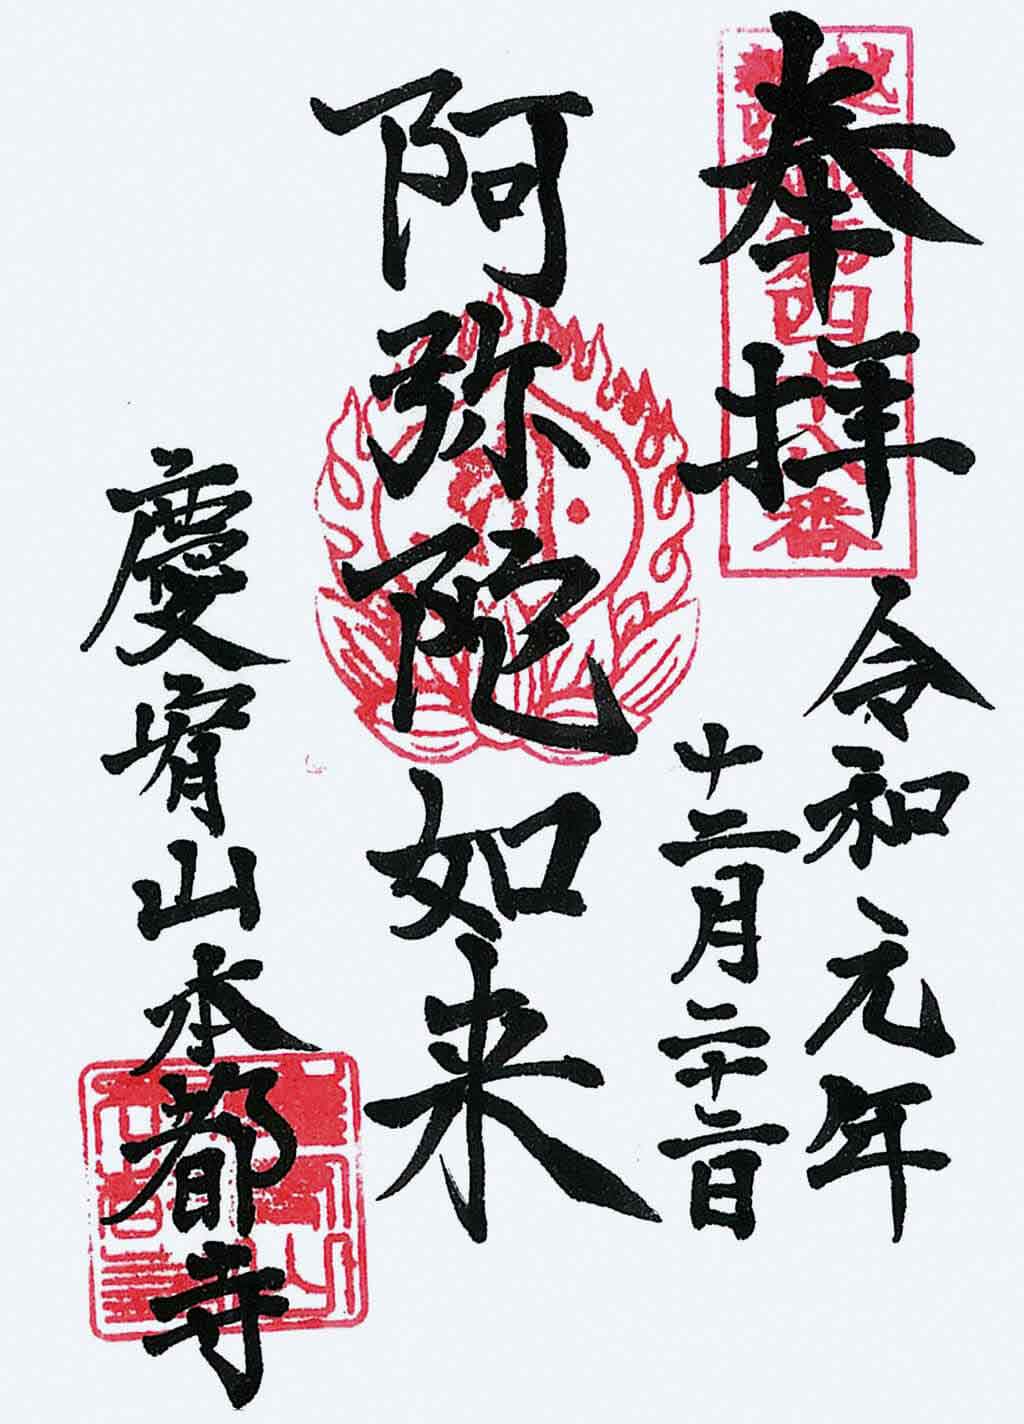 奉拝
第四十八番
令和元年
十二月二十二日
阿弥陀如来
慶宥山本都寺